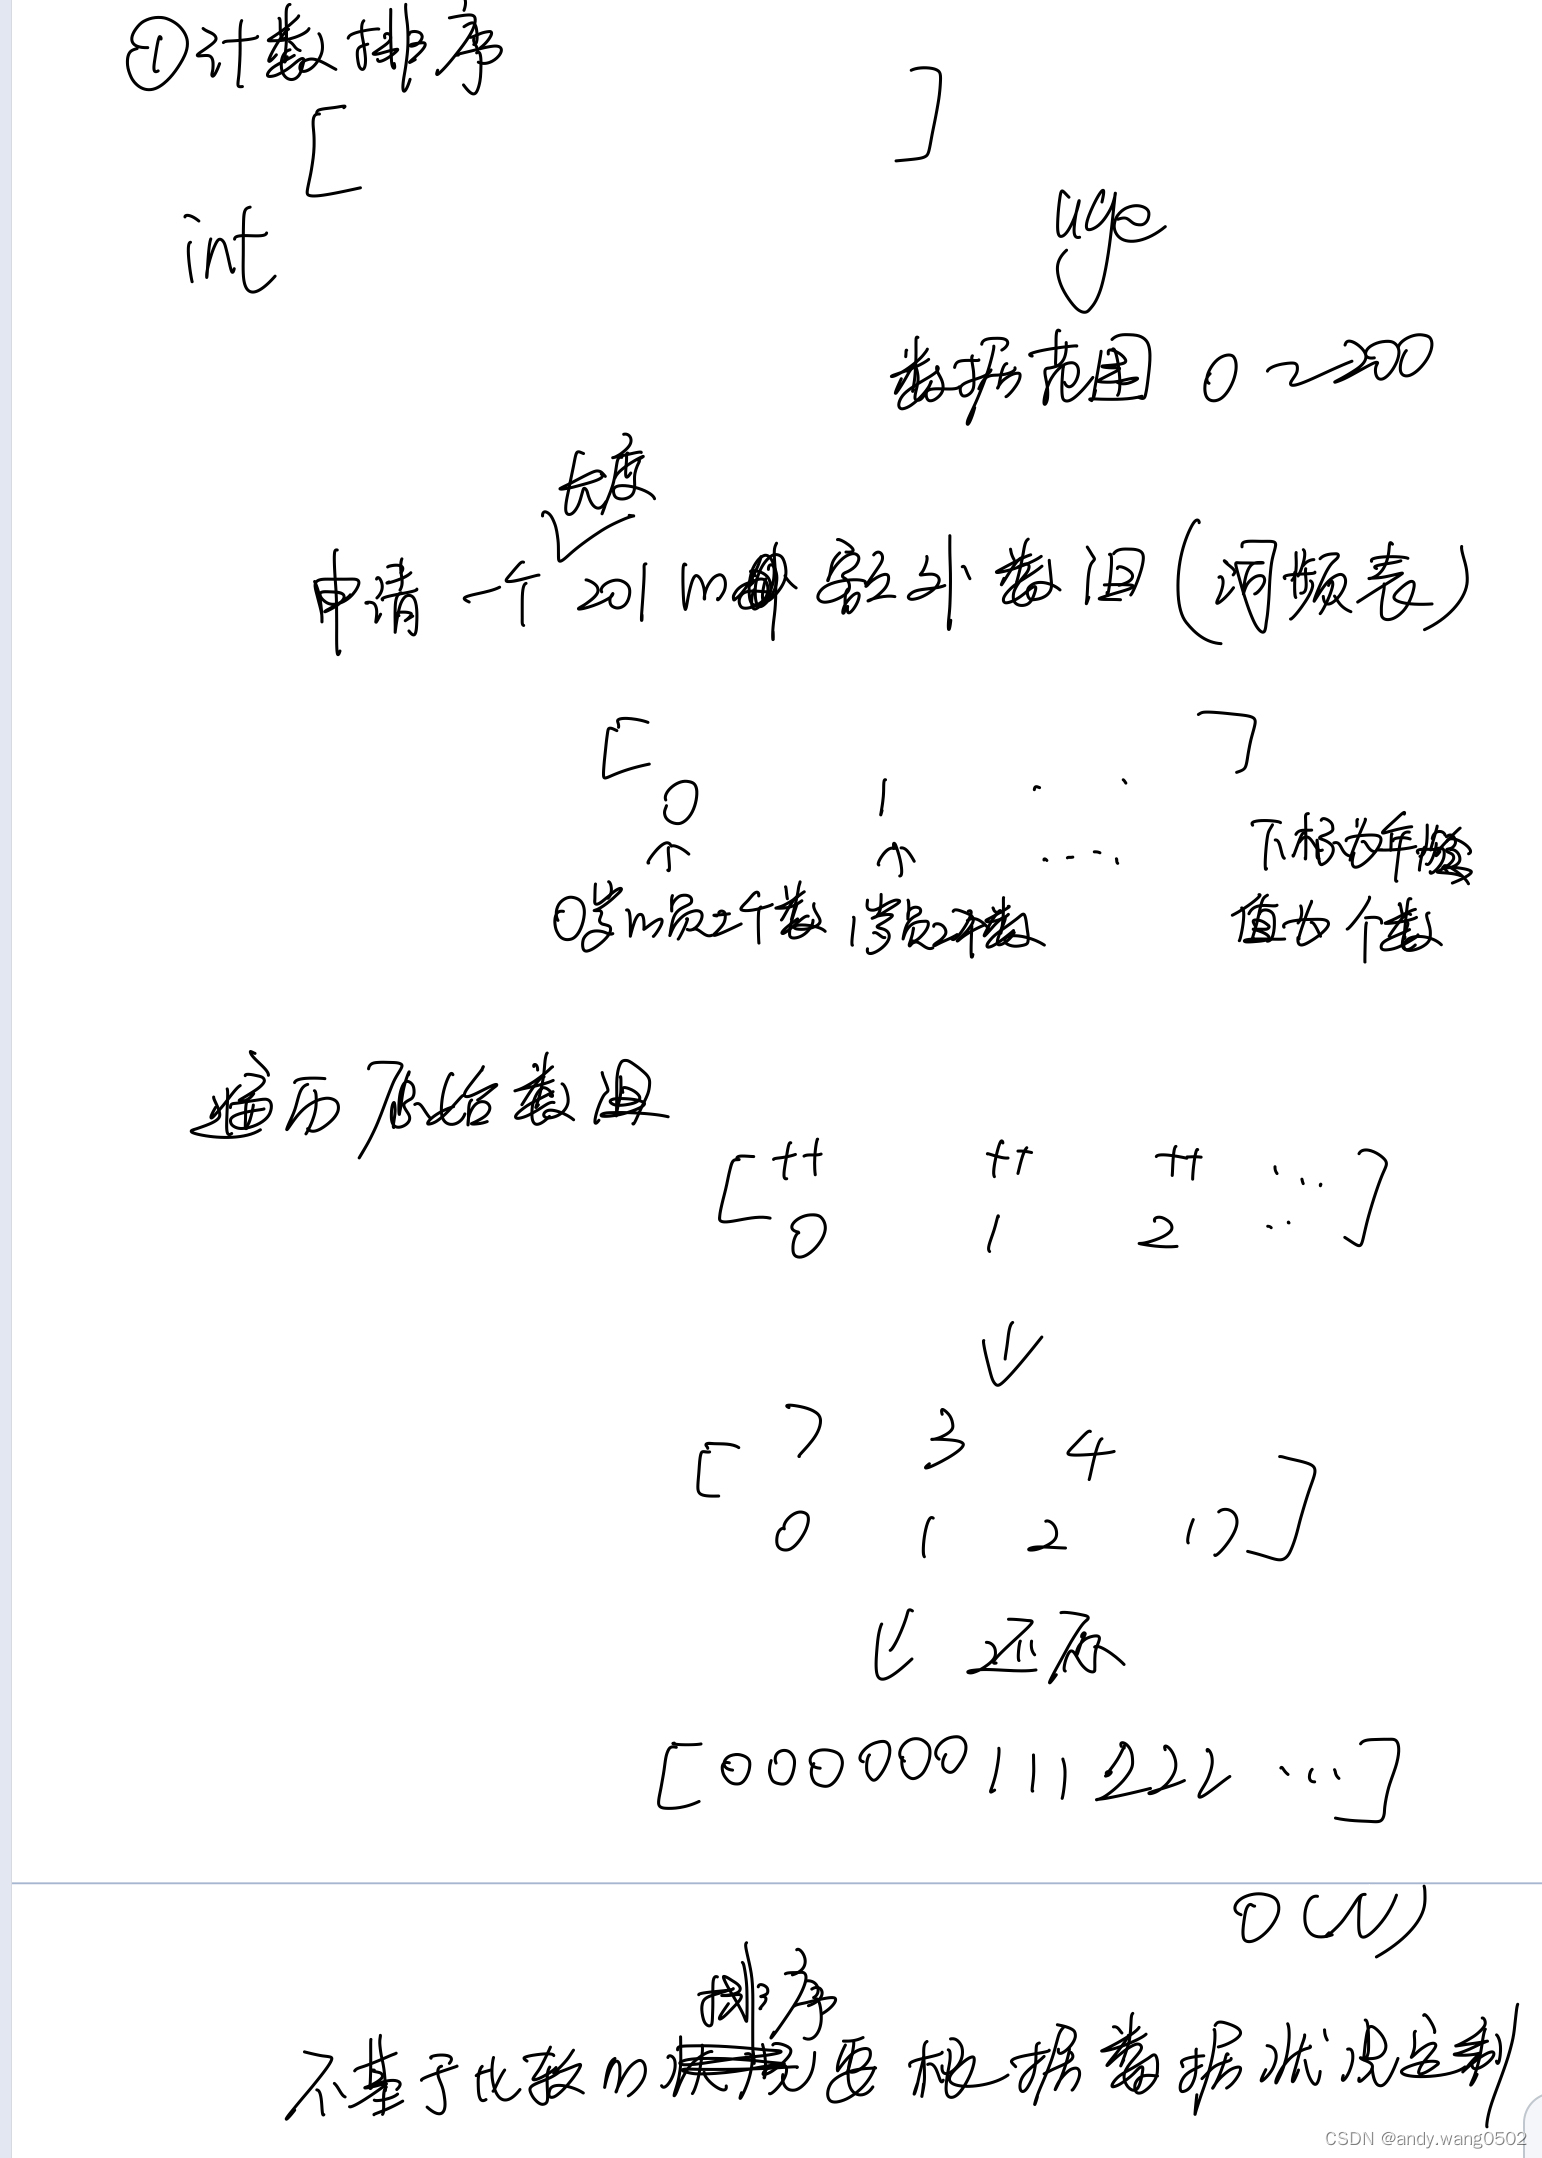 ①计数排序
[ ]
int
age
数据范围 0~200
长度
申请一个201的额外数组(词频表)
[ ]
0 1 ...
↑ ↑ ....
0岁的员工个数 1岁员工个数
下标为年龄
值为个数
遍历原始数组
[ ++ ++ ++ ... ]
0 1 2 ..
↓
[ 7 3 4 ]
0 1 2 17
↓ 还原
[000000111222 ...]
O(N)
排序
不基于比较的要根据数据状况定制
CSDN @andy.wang0502